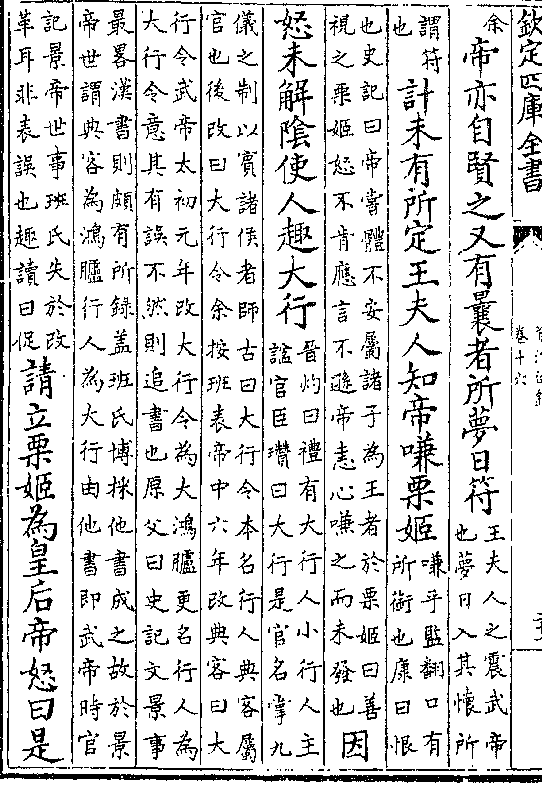 欽定四庫全書
卷十六
余
帝亦自賢之又有曩者所夢日符
王夫人之震武帝
也夢日入其懷所
謂符
也
計未有所定王夫人知帝嗛栗姬
嗛乎監翻口有
所銜也康曰恨
也史記曰帝嘗體不安屬諸子為王者於栗姬曰善
視之栗姬怒不肯應言不遜帝恚心嗛之而未發也
因
怒未解陰使人趣大行
晉灼曰禮有大行人小行人主
諡官臣瓚曰大行是官名掌九
儀之制以賓諸侯者師古曰大行令本名行人典客屬
官也後改曰大行令余按班表帝中六年改典客曰大
行令武帝太初元年改大行令為大鴻臚更名行人為
大行令意其有誤不然則追書也原父曰史記文景事
最畧漢書則頗有所錄盖班氏博採他書成之故於景
帝世謂典客為鴻臚行人為大行由他書即武帝時官
記景帝世事班氏失於改
革耳非表誤也趣讀曰促
請立栗姬為皇后帝怒曰是